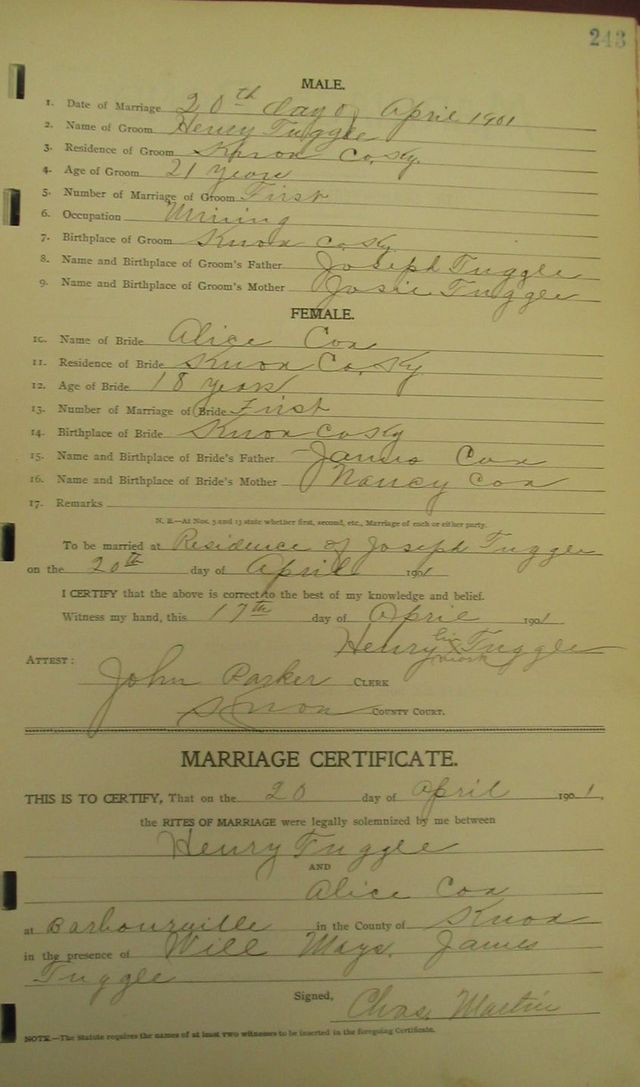 243
MALE.
1. Date of Marriage 20th day of April 1901
2. Name of Groom Henry Tuggle
3. Residence of Groom Knox Co, Ky.
4. Age of Groom 21 years
5. Number of Marriage of Groom First
6. Occupation Mining
7. Birthplace of Groom Knox Co Ky
8. Name and Birthplace of Groom's Father Joseph Tuggle
9. Name and Birthplace of Groom's Mother Josie Tuggle
FEMALE.
10. Name of Bride Alice Cox
11. Residence of Bride Knox Co, Ky
12. Age of Bride 18 years
13. Number of Marriage of Bride First
14. Birthplace of Bride Knox Co Ky
15. Name and Birthplace of Bride's Father James Cox
16. Name and Birthplace of Bride's Mother Nancy Cox
17. Remarks
N. B.—At Nos. 5 and 13 state whether first, second, etc., Marriage of each or either party.
To be married at Residence of Joseph Tuggle
on the 20th day of April 1901
I CERTIFY that the above is correct to the best of my knowledge and belief.
Witness my hand, this 17th day of April 1901
Henry his x mark Tuggle
ATTEST:
John Parker CLERK
Knox COUNTY COURT.
MARRIAGE CERTIFICATE.
THIS IS TO CERTIFY, That on the 20 day of April 1901,
the RITES OF MARRIAGE were legally solemnized by me between
Henry Tuggle
AND
Alice Cox
at Barbourville in the County of Knox
in the presence of Will Mays. James
Tuggle
Signed, Chas. Martin
NOTE.—The Statute requires the names of at least two witnesses to be inserted in the foregoing Certificate.